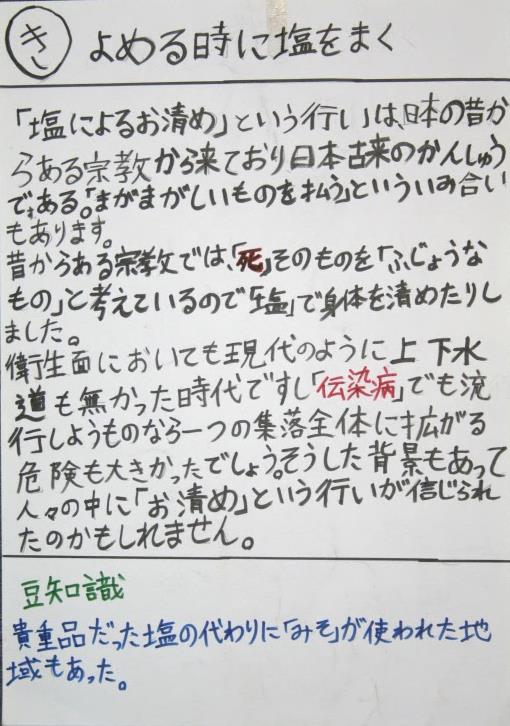 き よめる時に塩をまく
「塩によるお清め」という行い」は、日本の昔か
らある宗教から来ており日本古来のかんしゅう
である。「まがまがしいものを払う」といういみ合い
もあります。
昔からある宗教では、「死」そのものを「ふじょうな
もの」と考えているので「塩」で身体を清めたりし
ました。
衛生面においても現代のように上下水
道も無かった時代ですし「伝染病」でも流
行しようものなら一つの集落全体に拡がる
危険も大きかったでしょう。そうした背景もあって
人々の中に「お清め」という行いが信じられ
たのかもしれません。
豆知識
貴重品だった塩の代わりに「みそ」が使われた地
域もあった。